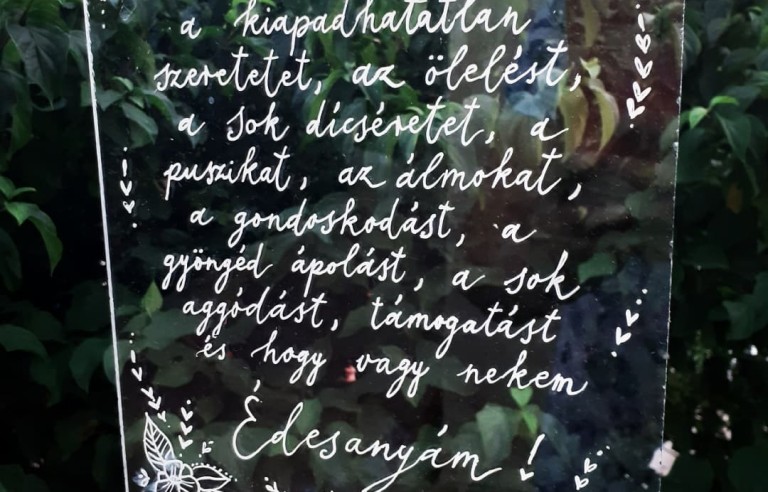 a kiapadhatatlan
szeretetet, az ölelést,
a sok dícséretet, a
puszikat, az álmokat,
a gondoskodást, a
gyöngéd ápolást, a sok
aggódást, támogatást
és hogy vagy nekem
Édesanyám!